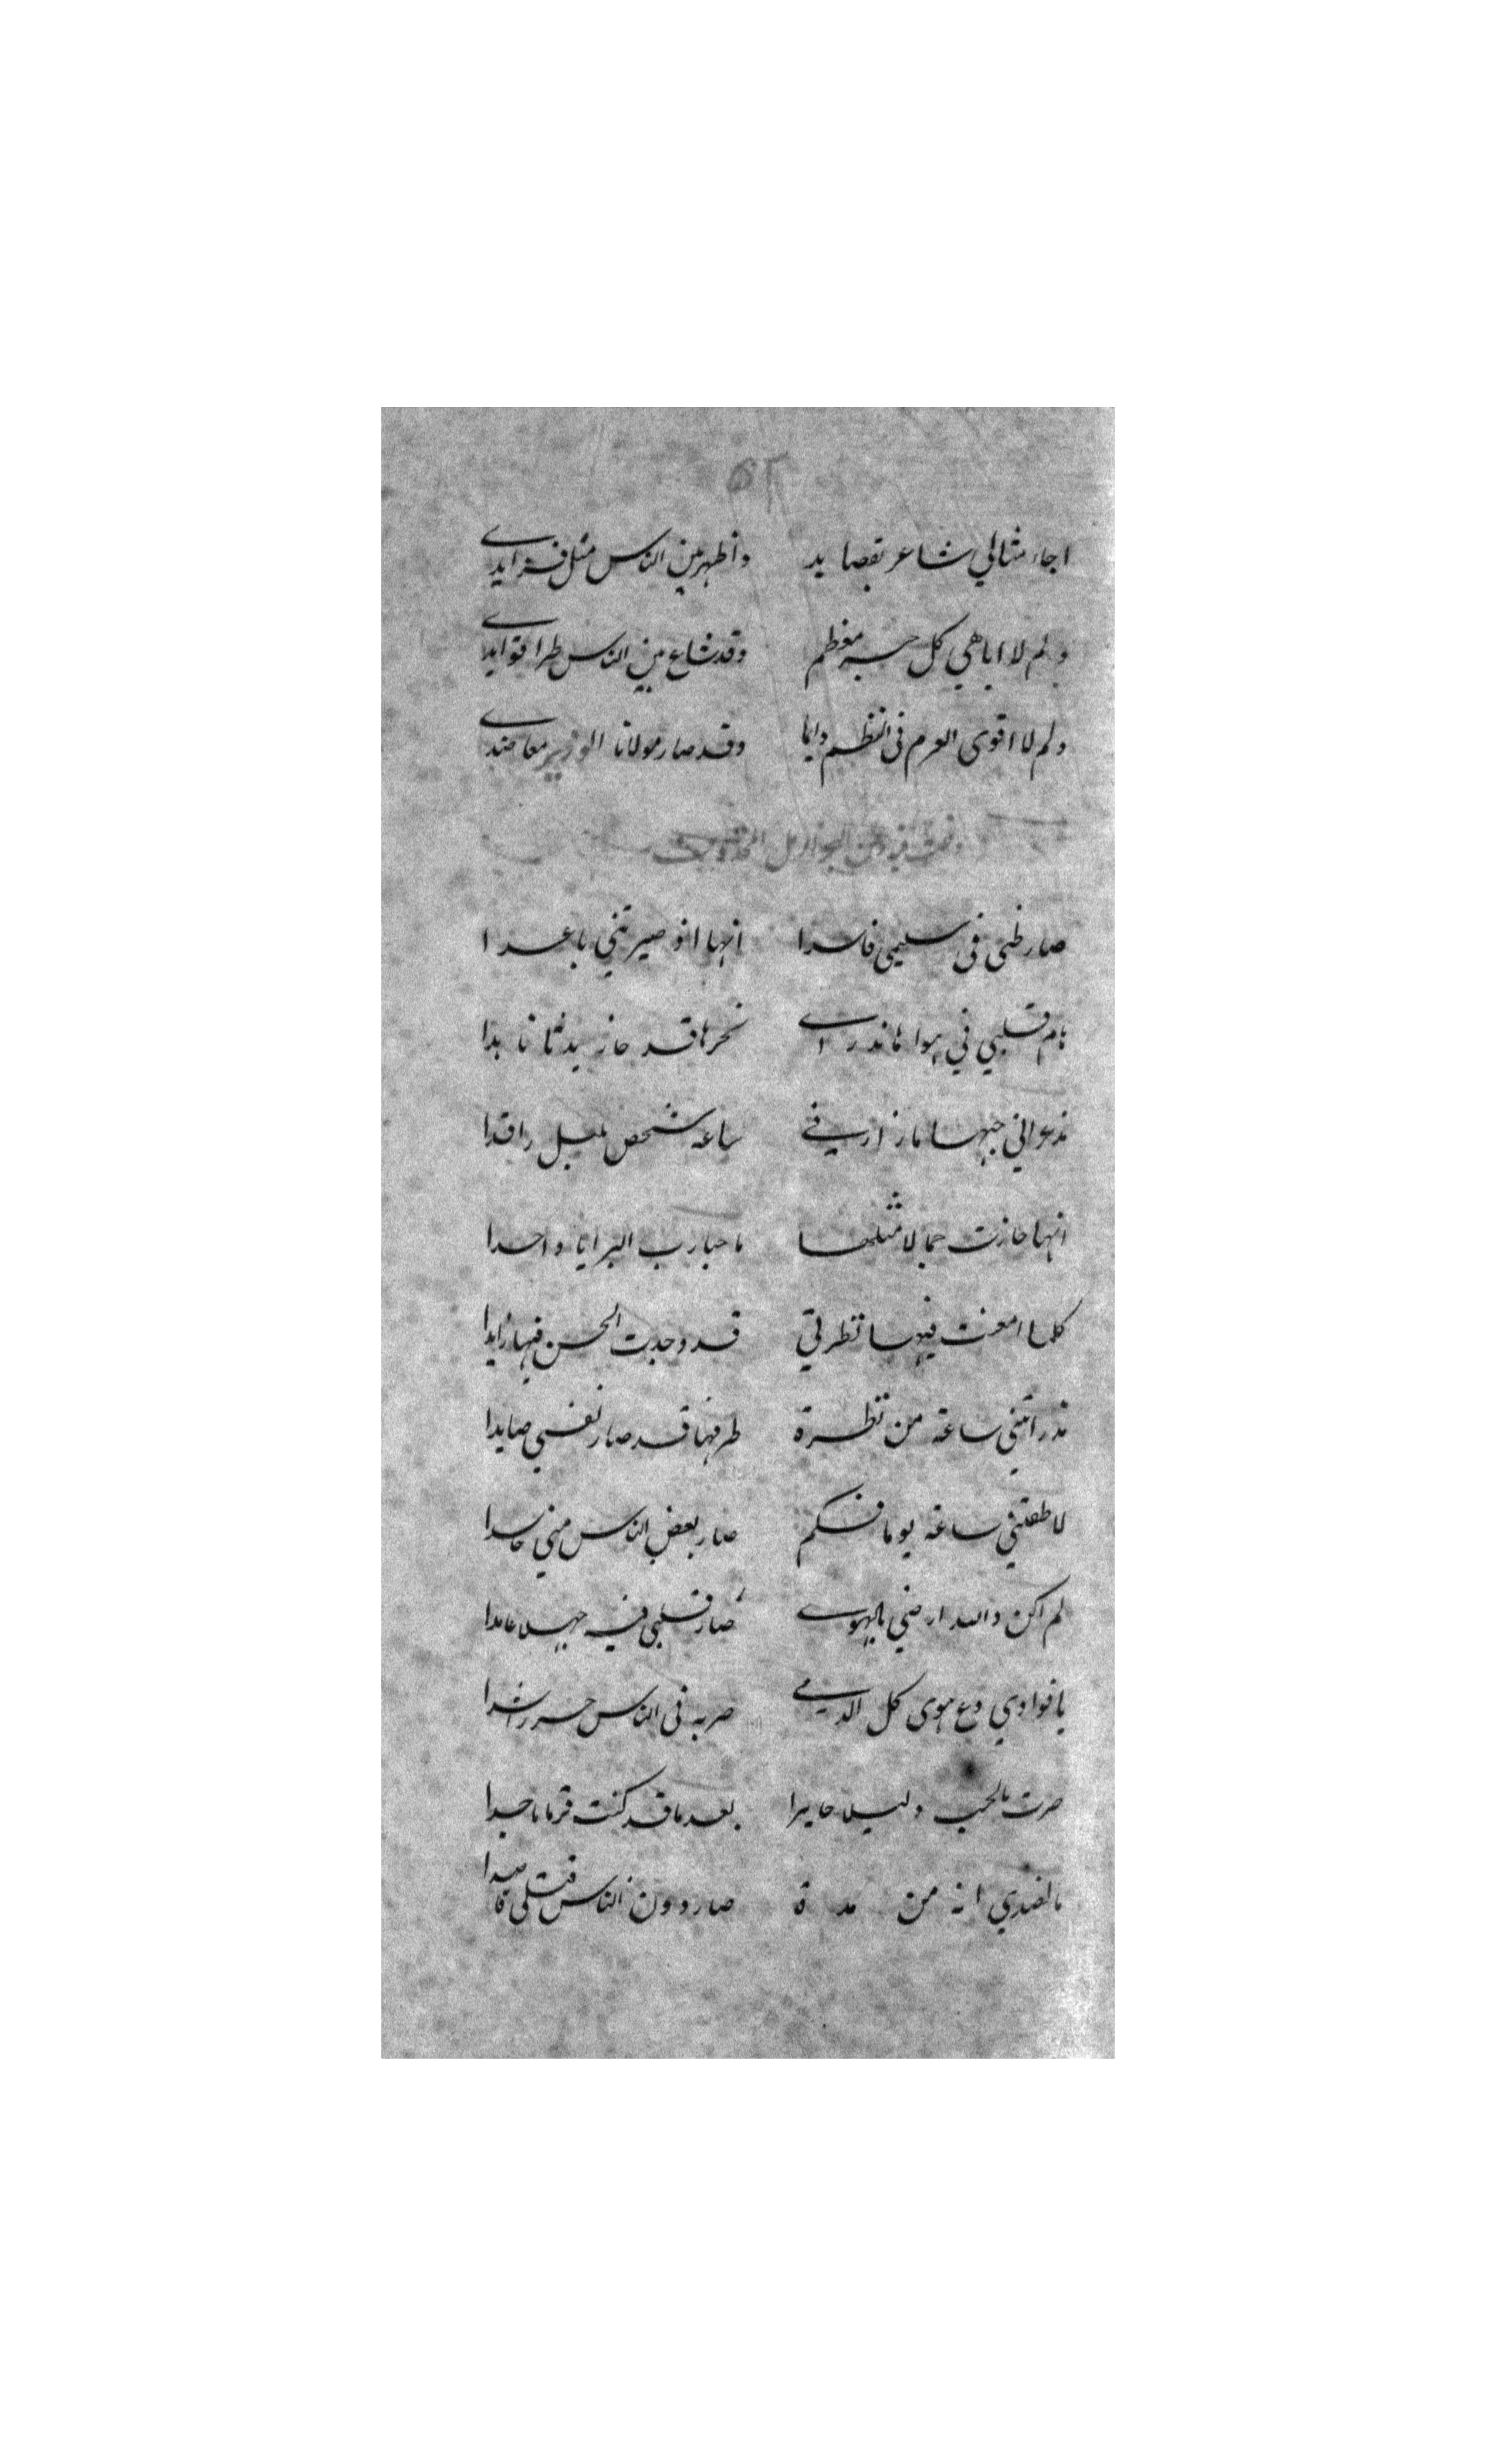 ٥٢
اجاء مثالي شاعر بقصايد واظهر بين الناس مثل فرايدي
ولم لا اباهي كل حبر معظم وقد شاع بين الناس طرا فوايدي
ولم لا اقوى العزم في النظم دايما وقد صار مولانا الوزير معاضدي
صار ظني في سليمى فاسدا انها اذ صيرتني باعدا
هام قلبي في هواها نحرها قد حاز
مذ عراني حبها ما زارني ساعة شخص بليل راقدا
انها حازت جمالا مثلها ما حبا رب البرايا واحدا
كلما امعنت فيها نظرتي قد وجدت الحسن فيها زايدا
مذ راتني ساعة من نظرة طرفها قد صار نفسي صايدا
لاطفتني ساعة يوما فكم صار بعض الناس مني حاسدا
لم اكن والله ارضى بالهوى صار قلبي فيه جهلا عامدا
يا فوادي دع هوى كل الدمى صر به في الناس حرا راشدا
صرت بالحب دليلا حايرا بعد ما قد كنت قرما ماجدا
ما لضدي انه من مدة صار دون الناس قتلي قاصدا